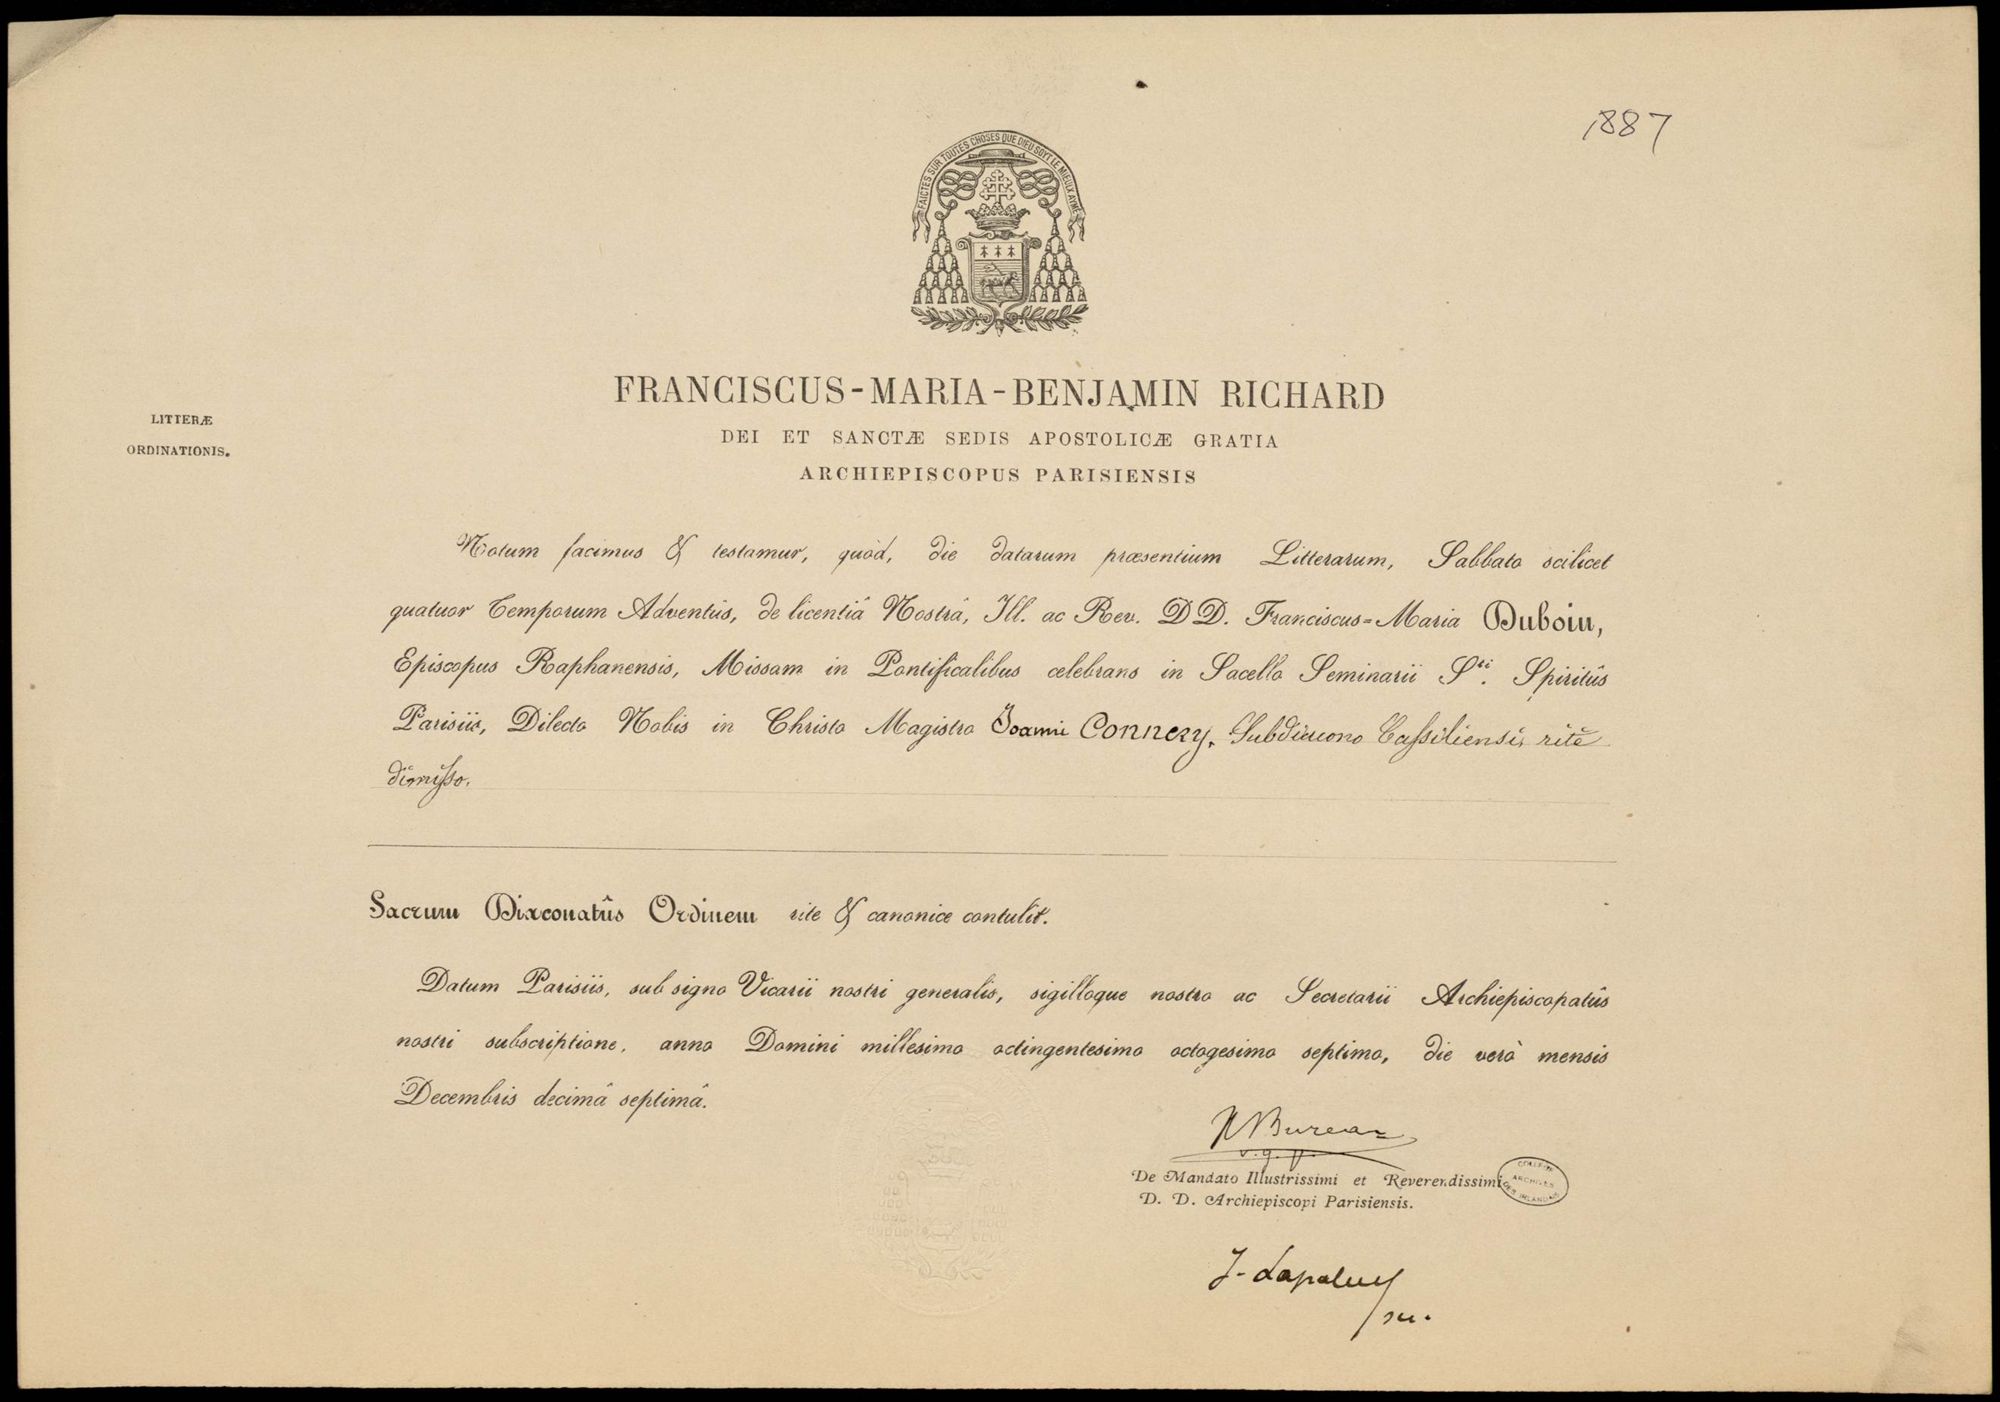 1887
FAICTES SUR TOUTES CHOSES QUE DIEU SOYT LE MIEULX AYMÉ
FRANCISCUS-MARIA-BENJAMIN RICHARD
LITTERÆ
ORDINATIONIS.
DEI ET SANCTÆ SEDIS APOSTOLICÆ GRATIA
ARCHIEPISCOPUS PARISIENSIS
Notum facimus & testamur, quòd, die datarum præsentium Litterarum, Sabbato scilicet
quatuor Temporum Adventûs, de licentiâ Nostrâ, Ill. ac Rev. DD. Franciscus=Maria Duboin,
Episcopus Raphanensis, Missam in Pontificalibus celebrans in Sacello Seminarii Sti. Spiritûs
Parisiis, Dilecto Nobis in Christo Magistro Joanni Connery, Subdiacono Cassiliensi, ritè
dimisso.
Sacrum Diaconatûs Ordinem rite & canonice contulit.
Datum Parisiis, sub signo Vicarii nostri generalis, sigilloque nostro ac Secretarii Archiepiscopatûs
nostri subscriptione, anno Domini millesimo octingentesimo octogesimo septimo, die verò mensis
Decembris decimâ septimâ.
Bureau
v. g.
De Mandato Illustrissimi et Reverendissimi
D. D. Archiepiscopi Parisiensis.
COLLÈGE
ARCHIVES
DES IRLANDAIS
J. Lapalu